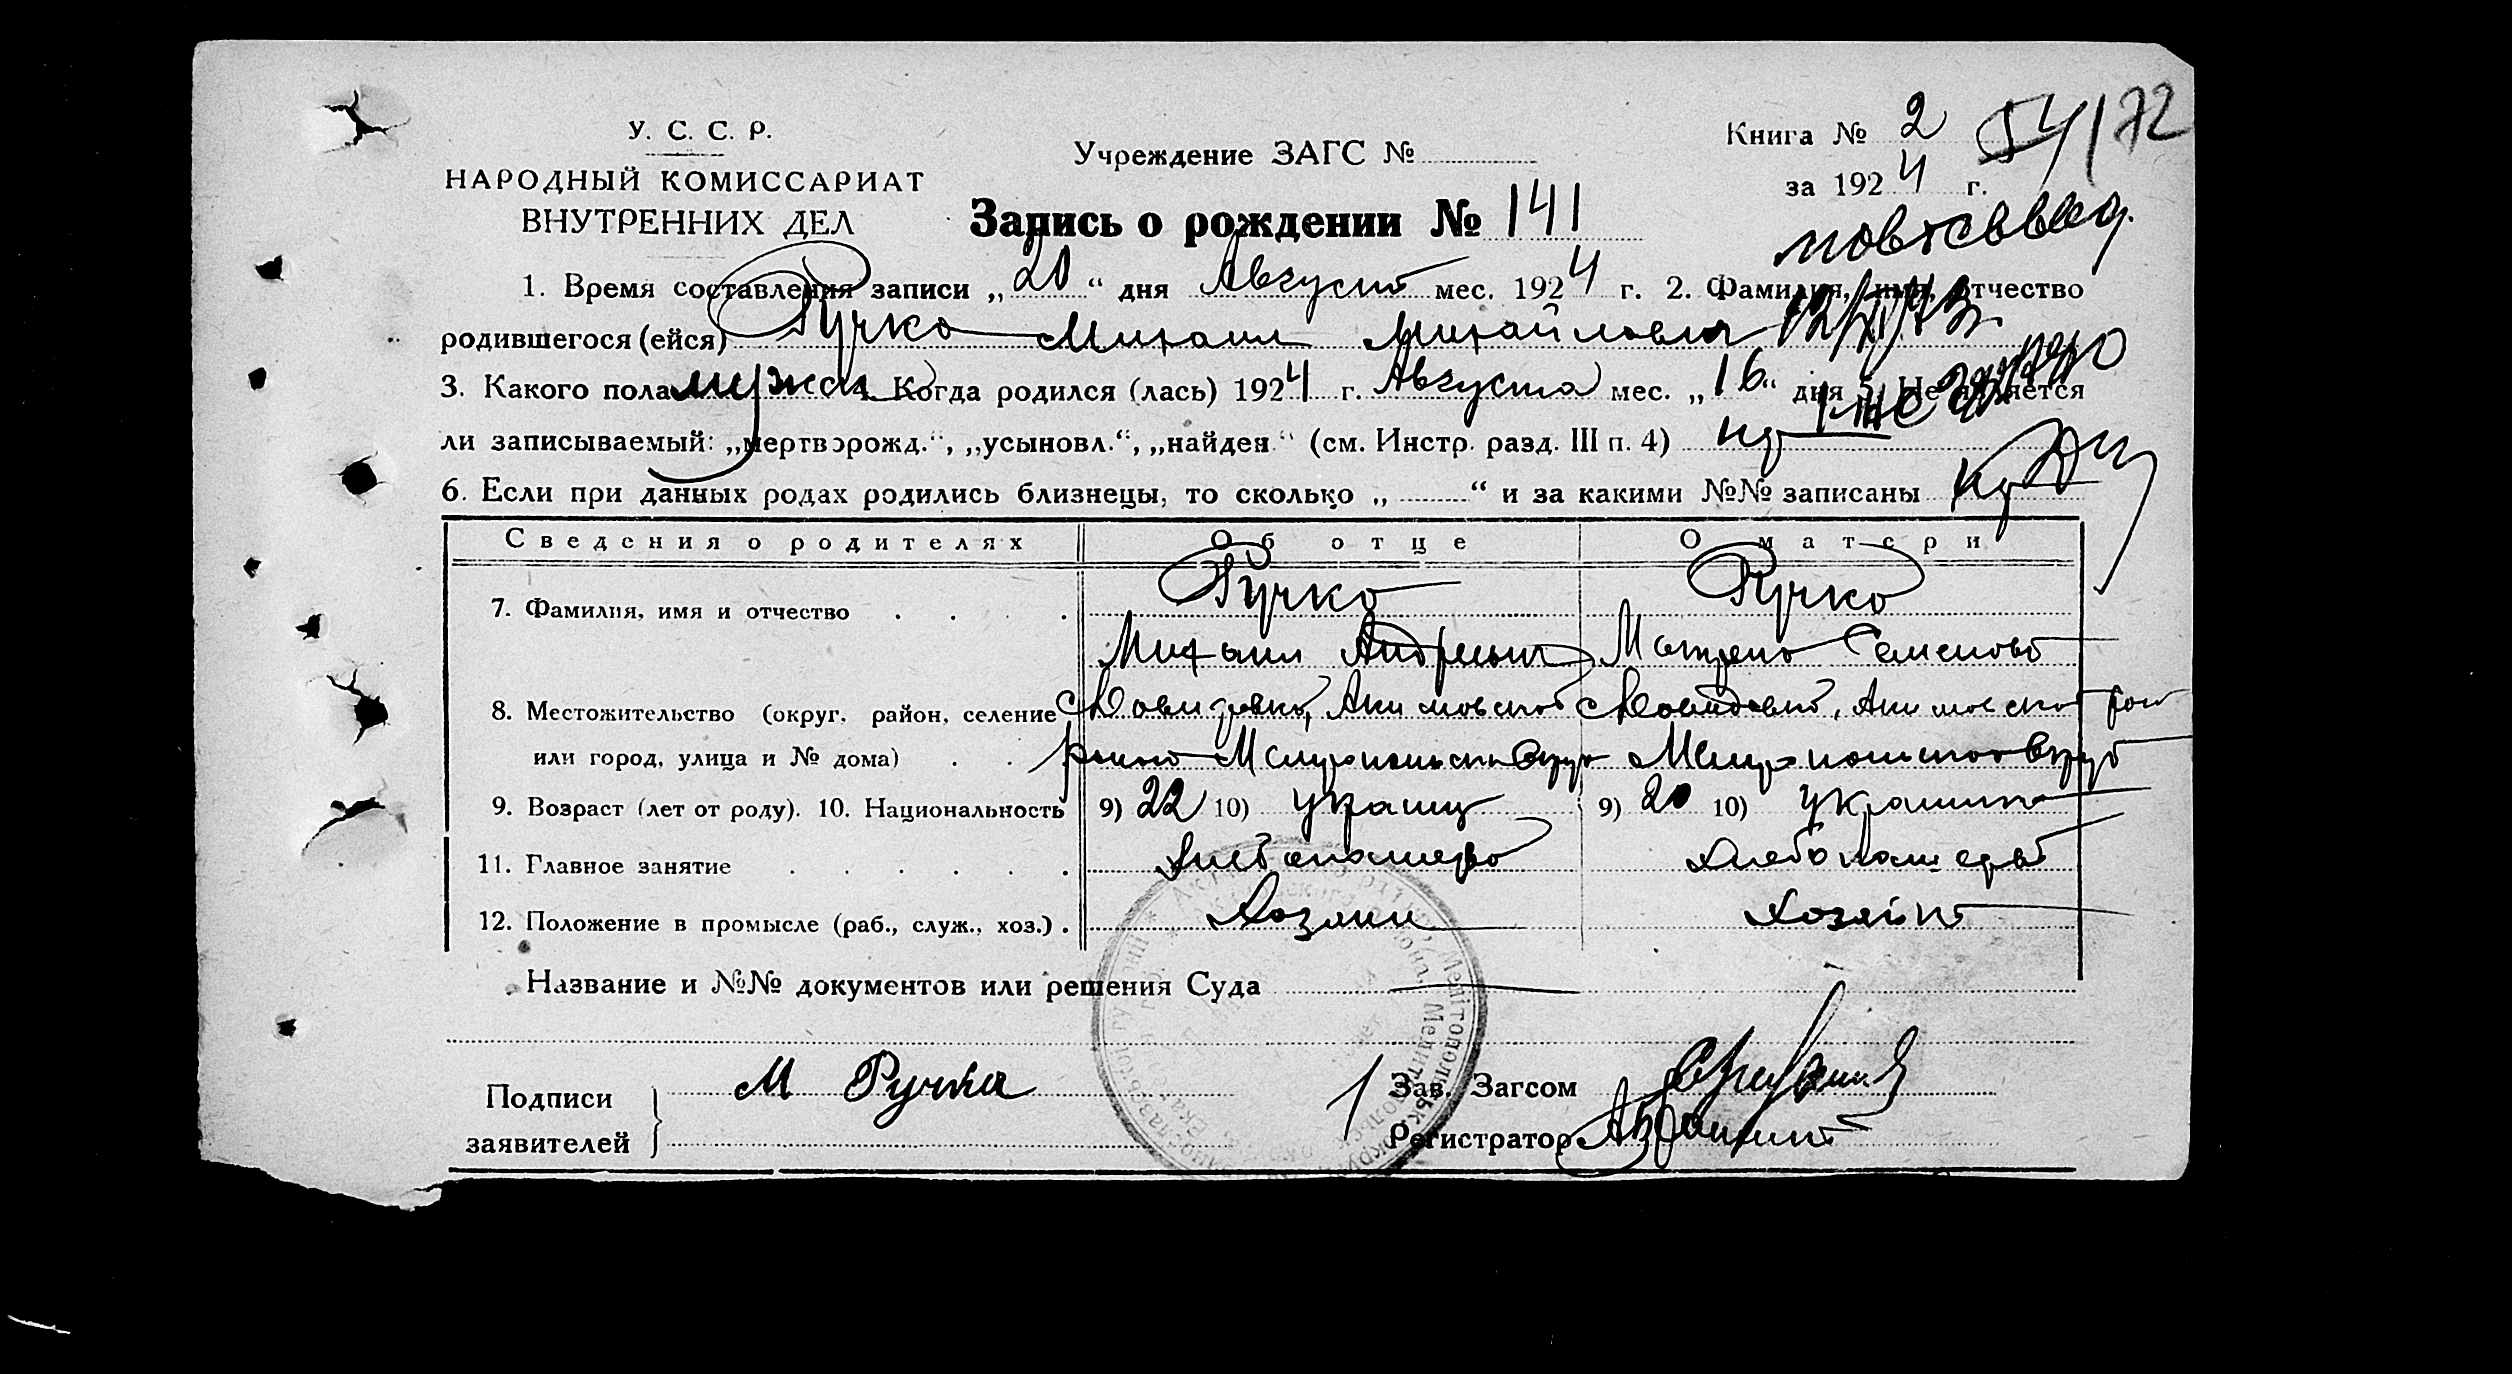 У. С. С. Р.
НАРОДНЫЙ КОМИССАРИАТ
ВНУТРЕННИХ ДЕЛ
Учреждение ЗАГС №
Книга № 2 54/72
за 1924 г.
Запись о рождении № 141
1. Время составления записи „20“ дня Август мес. 1924 г. 2. Фамилия, имя, отчество
родившегося (ейся) Ручко Михаил Михайлович
3. Какого пола мужск 4. Когда родился (лась) 1924 г. Августа мес. „16“ дня 5. Не является
ли записываемый: „мертворожд.“, „усыновл.“, „найден“ (см. Инстр. разд. III п. 4)
6. Если при данных родах родились близнецы, то сколько „ “ и за какими №№ записаны
Сведения о родителях Об отце О матери
7. Фамилия, имя и отчество Ручко Ручко
Михаил Андреевич Матрена Семенова
8. Местожительство (округ, район, селение Давидовка, Акимовской Давидовка, Акимовско
или город, улица и № дома) района Мелитопольск Округ Мелитопольского Округа
9. Возраст (лет от роду). 10. Национальность 9) 22 10) украинц 9) 20 10) Украинка
11. Главное занятие Хлебопашество Хлебопашество
12. Положение в промысле (раб., служ., хоз.) Хозяин Хозяйка
Название и №№ документов или решения Суда
Подписи
заявителей
М Ручка
Зав. Загсом
Регистратор